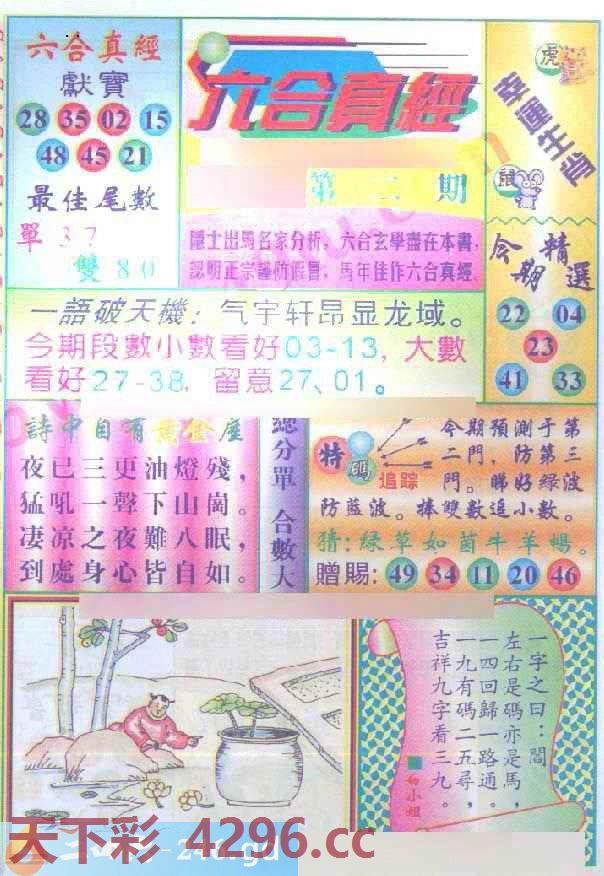 六合真經
獻寶
28 35 02 15
48 45 21
最佳尾數
單37
雙80
六合真經
第二期
隱士出馬名家分析，六合玄學盡在本書，
認明正宗謹防假冒，馬年佳作六合真經
虎
幸運生肖
鼠
今期精選
22 04
23
41 33
一語破天機：气宇轩昂显龙域。
今期段數小數看好03-13，大數
看好27-38，留意27、01。
詩中自有黃金屋
夜已三更油燈殘，
猛吼一聲下山崗。
凄凉之夜難入眠，
到處身心皆自如。
總分單 合數大
特碼追踪
今期預測于第
二門，防第三
門。睇好綠波
防藍波。捧雙數追小數。
猜：綠草如茵牛羊暢。
贈賜：49 34 11 20 46
一字之曰：闖
左右是碼亦是馬，
一四回歸一路通。
一九有碼二五尋，
吉祥九字看三九。
小姐
天下彩 4296.cc
246.gd